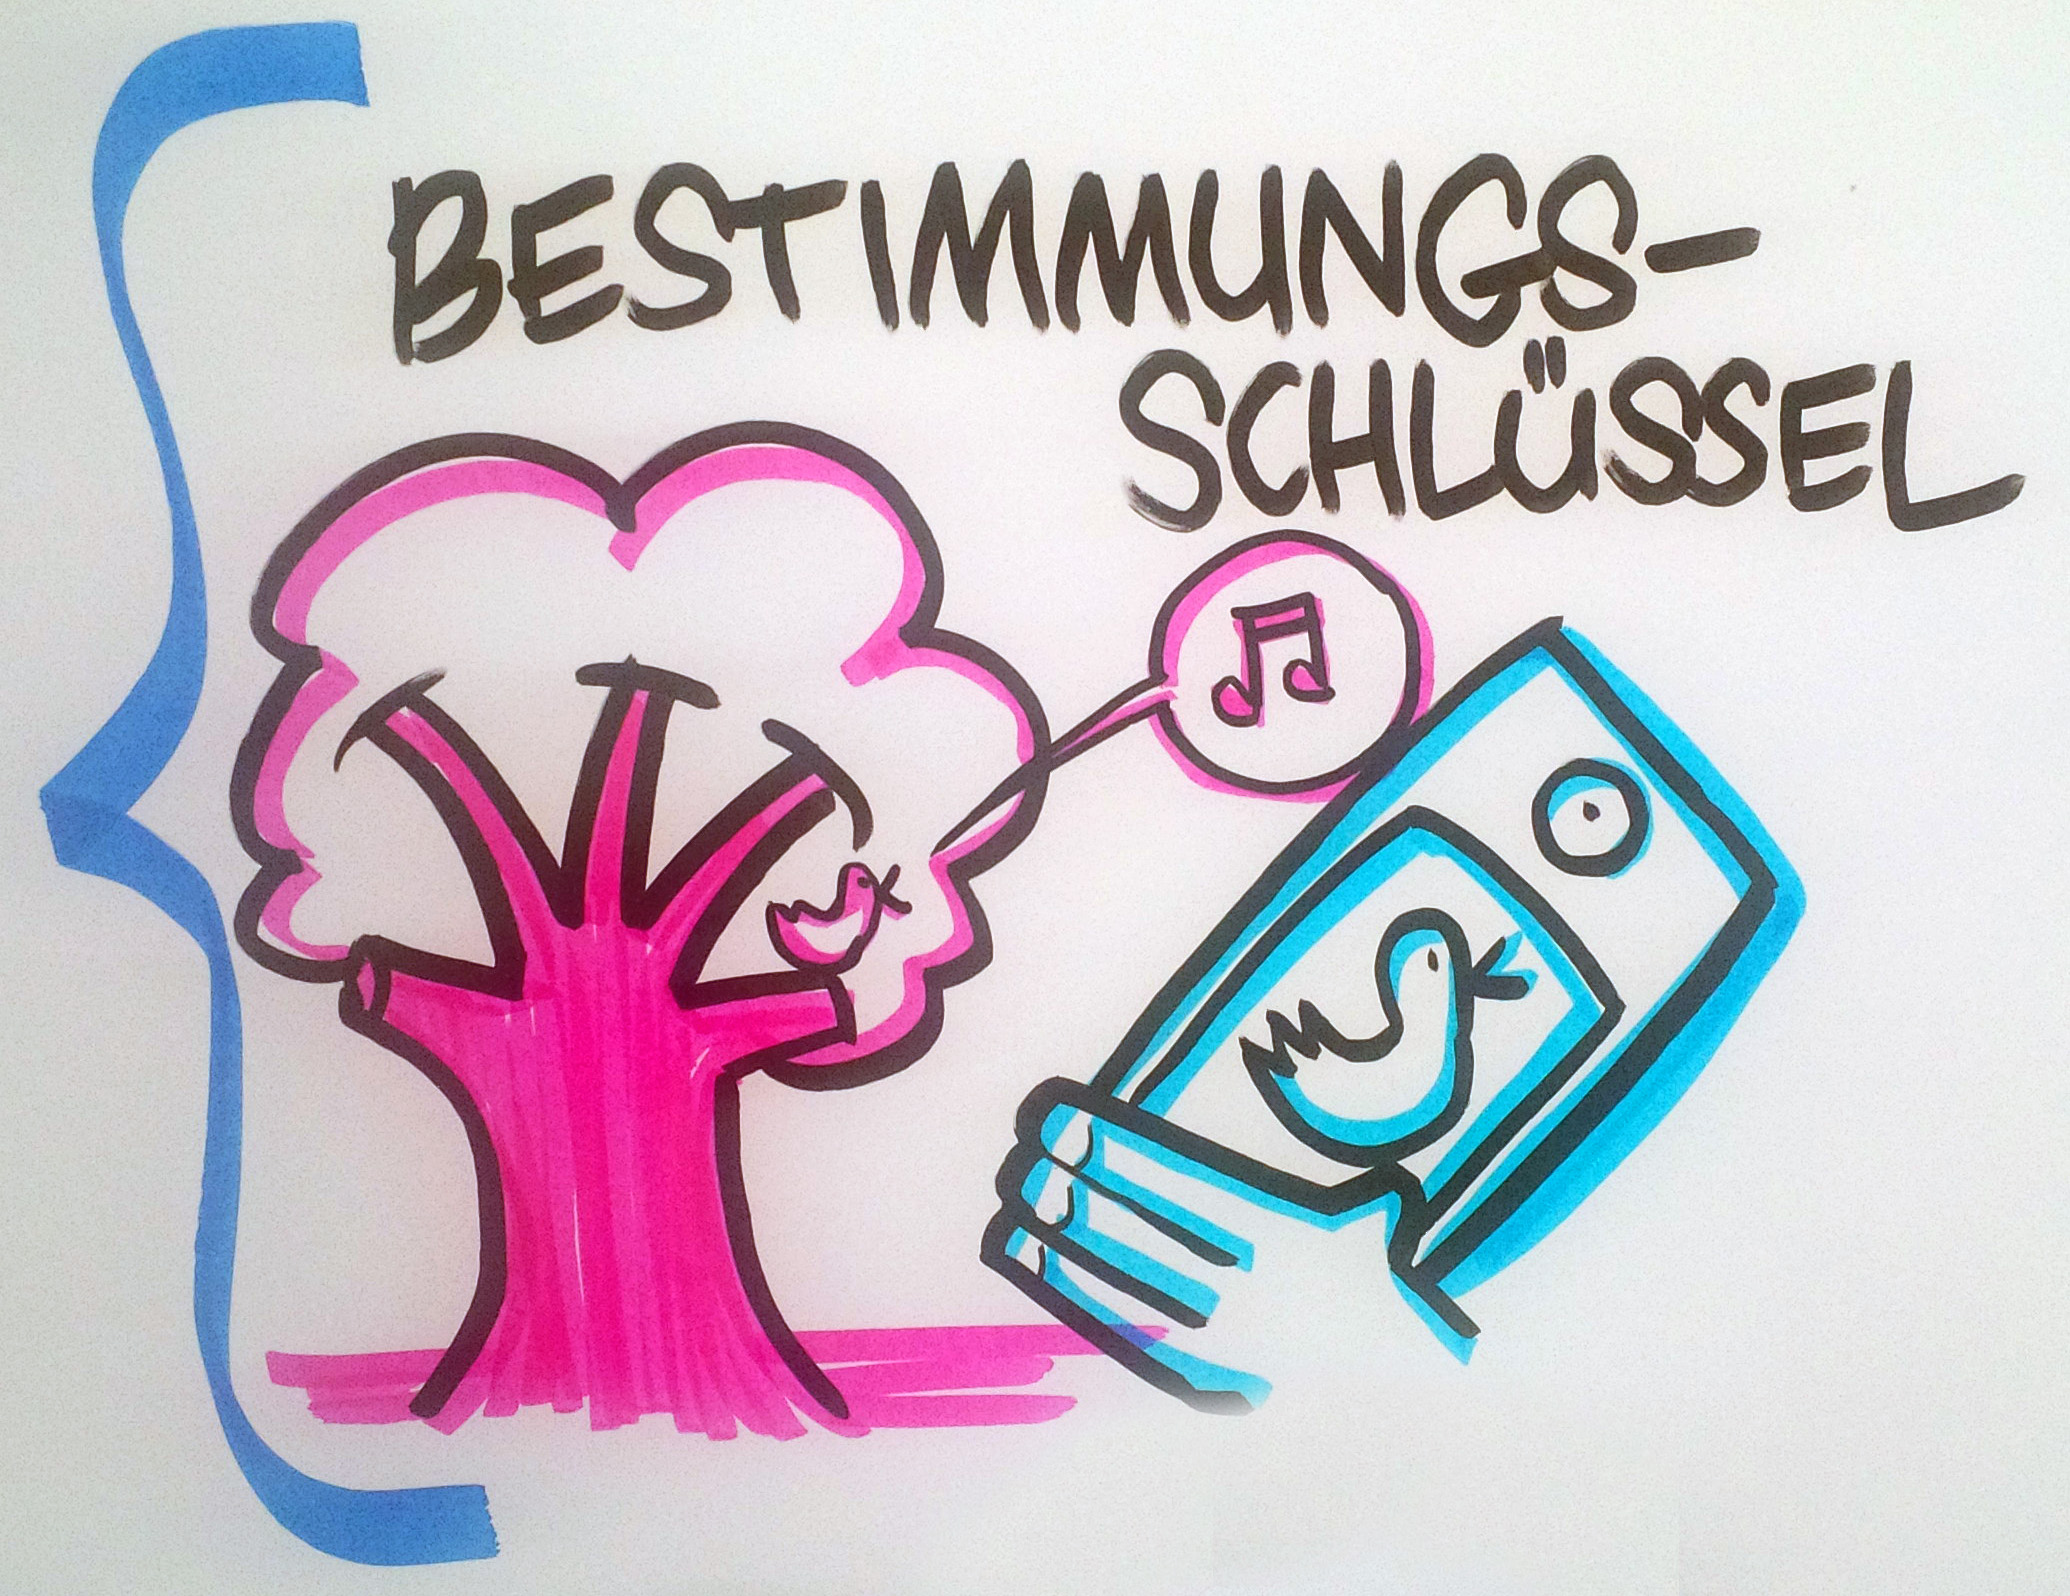 BESTIMMUNGS-
SCHLÜSSEL